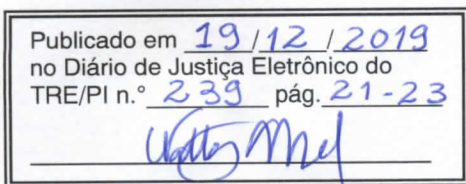 Publicado em 19/12/2019
no Diário de Justiça Eletrônico do
TRE/PI n.° 239 pág. 21-23